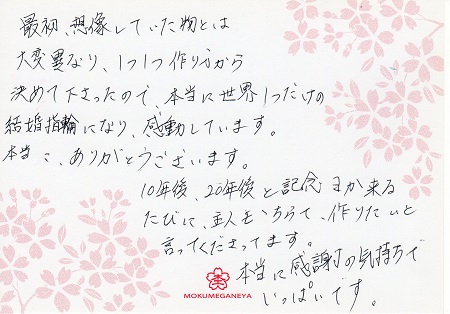 最初、想像していた物とは
大変異なり、1つ1つ作り方から
決めて下さったので、本当に世界1つだけの
結婚指輪になり、感動しています。
本当に、ありがとうございます。
10年後、20年後と記念日が来る
たびに、主人をつれて、作りたいと
言ってくださってます。
本当に感謝の気持ちで
いっぱいです。
MOKUMEGANEYA